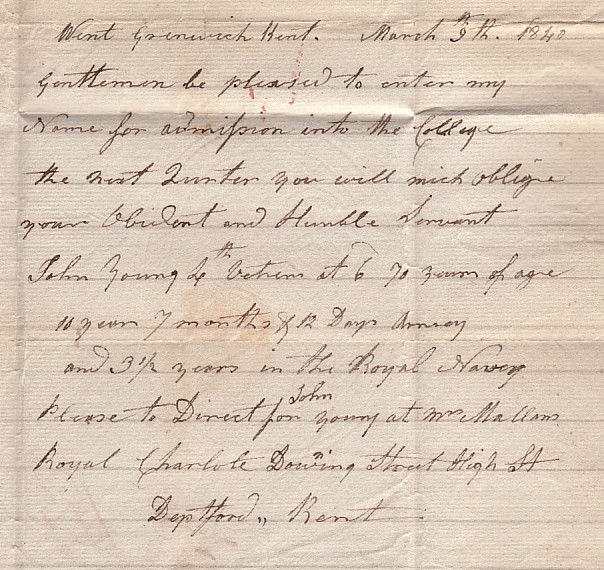 West Grenwich Kent. March 9th. 1840
Gentlemen be pleased to enter my
Name for admission into the College
the next Quater you will mich oblige
your Obident and Humble Servant
John Young 4th Vetren at 6 70 years of age
10 years 7 months & 12 Days Armey
and 3 1/2 years in the Royal Navey
Please to Direct for John young at Mrs Mallans
Royal Charlote Dowing Street High St
Deptford,, Kent